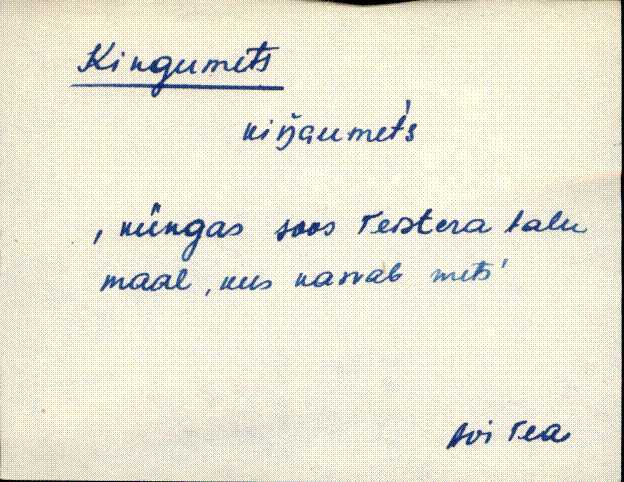 Kingumets
kiŋgumet́s
'küngas soos Teistera talu
maal, kus kasvab mets'
Avi Tea